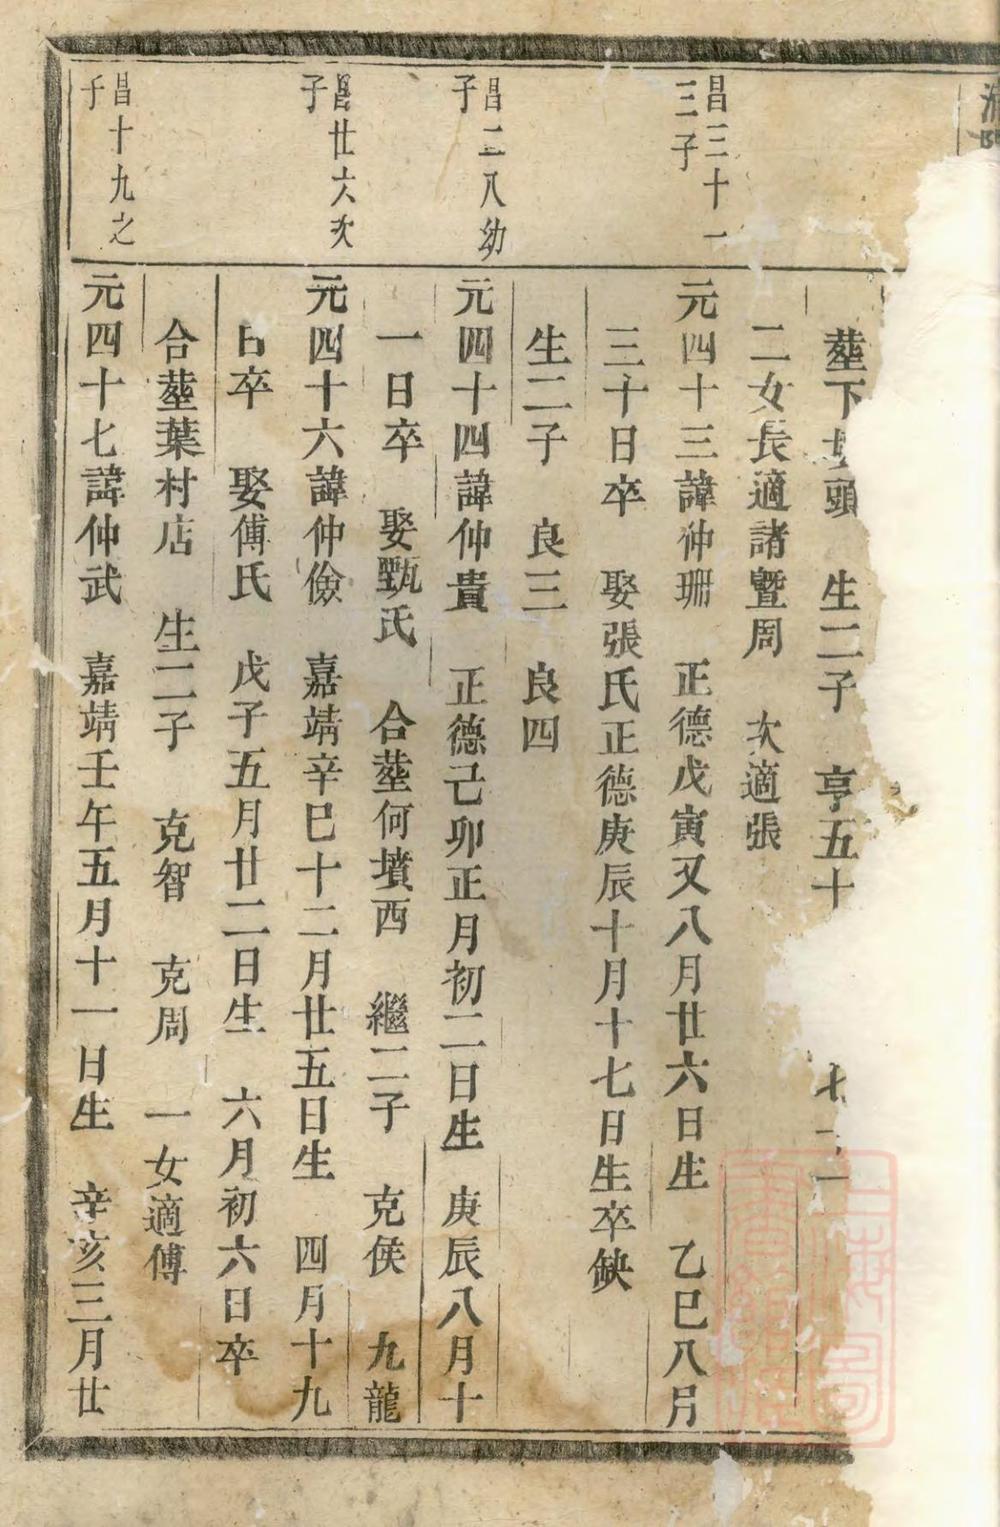 葬下頭　生二子　亨五十
二女長適諸曁周　次適張
昌三十一
三子
元四十三諱仲珊　正德戊寅又八月廿六日生　乙巳八月
三十日卒　娶張氏正德庚辰十月十七日生卒缺
生二子　良三　良四
昌二八幼
子
元四十四諱仲貴　正德己卯正月初二日生　庚辰八月十
一日卒　娶甄氏　合葬何墳西　繼二子　克侯　九龍
昌廿六次
子
元四十六諱仲儉　嘉靖辛巳十二月廿五日生　四月十九
日卒　娶傅氏　戊子五月廿二日生　六月初六日卒
合葬葉村店　生二子　克智　克周　一女適傅
昌十九之
子
元四十七諱仲武　嘉靖壬午五月十一日生　辛亥三月廿